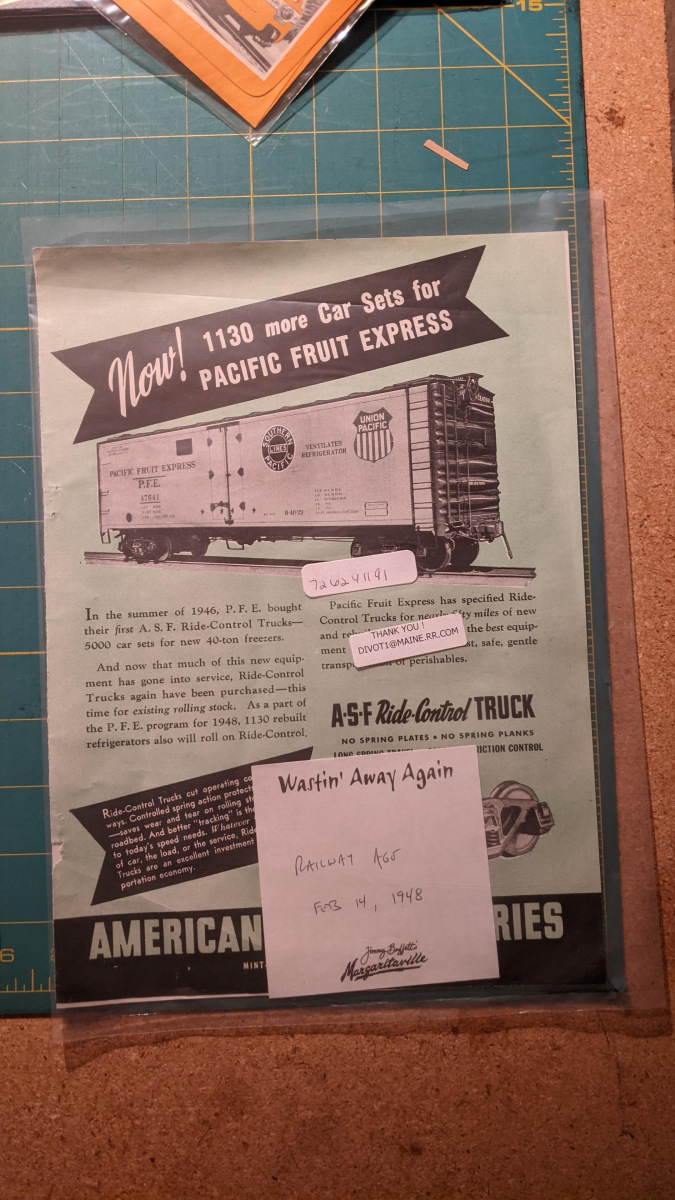 15
Now! 1130 more Car Sets for
PACIFIC FRUIT EXPRESS
PACIFIC FRUIT EXPRESS
P.F.E.
47641
SOUTHERN
LINES
PACIFIC
VENTILATED
REFRIGERATOR
UNION
PACIFIC
R-40-23
726241191
In the summer of 1946, P. F. E. bought
their first A. S. F. Ride-Control Trucks—
5000 car sets for new 40-ton freezers.
And now that much of this new equip-
ment has gone into service, Ride-Control
Trucks again have been purchased—this
time for existing rolling stock. As a part of
the P. F. E. program for 1948, 1130 rebuilt
refrigerators also will roll on Ride-Control.
Pacific Fruit Express has specified Ride-
Control Trucks for nearly fifty miles of new
and the best equip-
ment safe, gentle
of perishables.
THANK YOU !
DIVOT1@MAINE.RR.COM
A·S·F Ride-Control TRUCK
NO SPRING PLATES • NO SPRING PLANKS
LONG SPRING TRAVEL CONTROL
Ride-Control Trucks cut operating
ways. Controlled spring action
—saves wear and tear on rolling
roadbed. And better "tracking" is
to today's speed needs. Whatever
of car, the load, or the service,
Trucks are an excellent investment
portation economy.
Wastin' Away Again
RAILWAY AGE
FEB 14, 1948
Jimmy Buffett's
Margaritaville
AMERICAN
MINT-
6